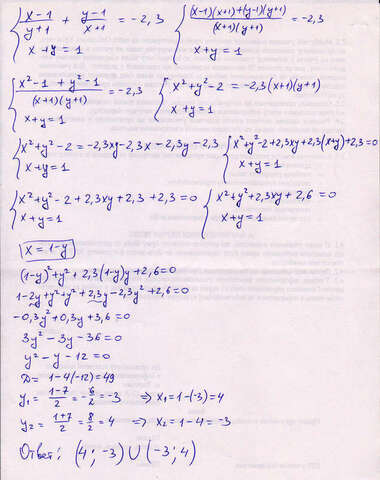 { (x-1)/(y+1) + (y-1)/(x+1) = -2,3 { ((x-1)(x+1)+(y-1)(y+1))/((x+1)(y+1)) = -2,3
x+y=1 x+y=1
{ (x²-1+y²-1)/((x+1)(y+1)) = -2,3 { x²+y²-2 = -2,3(x+1)(y+1)
x+y=1 x+y=1
{ x²+y²-2 = -2,3xy-2,3x-2,3y-2,3 { x²+y²-2+2,3xy+2,3(x+y)+2,3=0
x+y=1 x+y=1
{ x²+y²-2+2,3xy+2,3+2,3=0 { x²+y²+2,3xy+2,6=0
x+y=1 x+y=1
x=1-y
(1-y)²+y²+2,3(1-y)y+2,6=0
1-2y+y²+y²+2,3y-2,3y²+2,6=0
-0,3y²+0,3y+3,6=0
3y²-3y-36=0
y²-y-12=0
D=1-4(-12)=49
y₁ = (1-7)/2 = -6/2 = -3 ⇒ x₁=1-(-3)=4
y₂ = (1+7)/2 = 8/2 = 4 ⇒ x₂=1-4=-3
Ответ: (4; -3) ∪ (-3; 4)